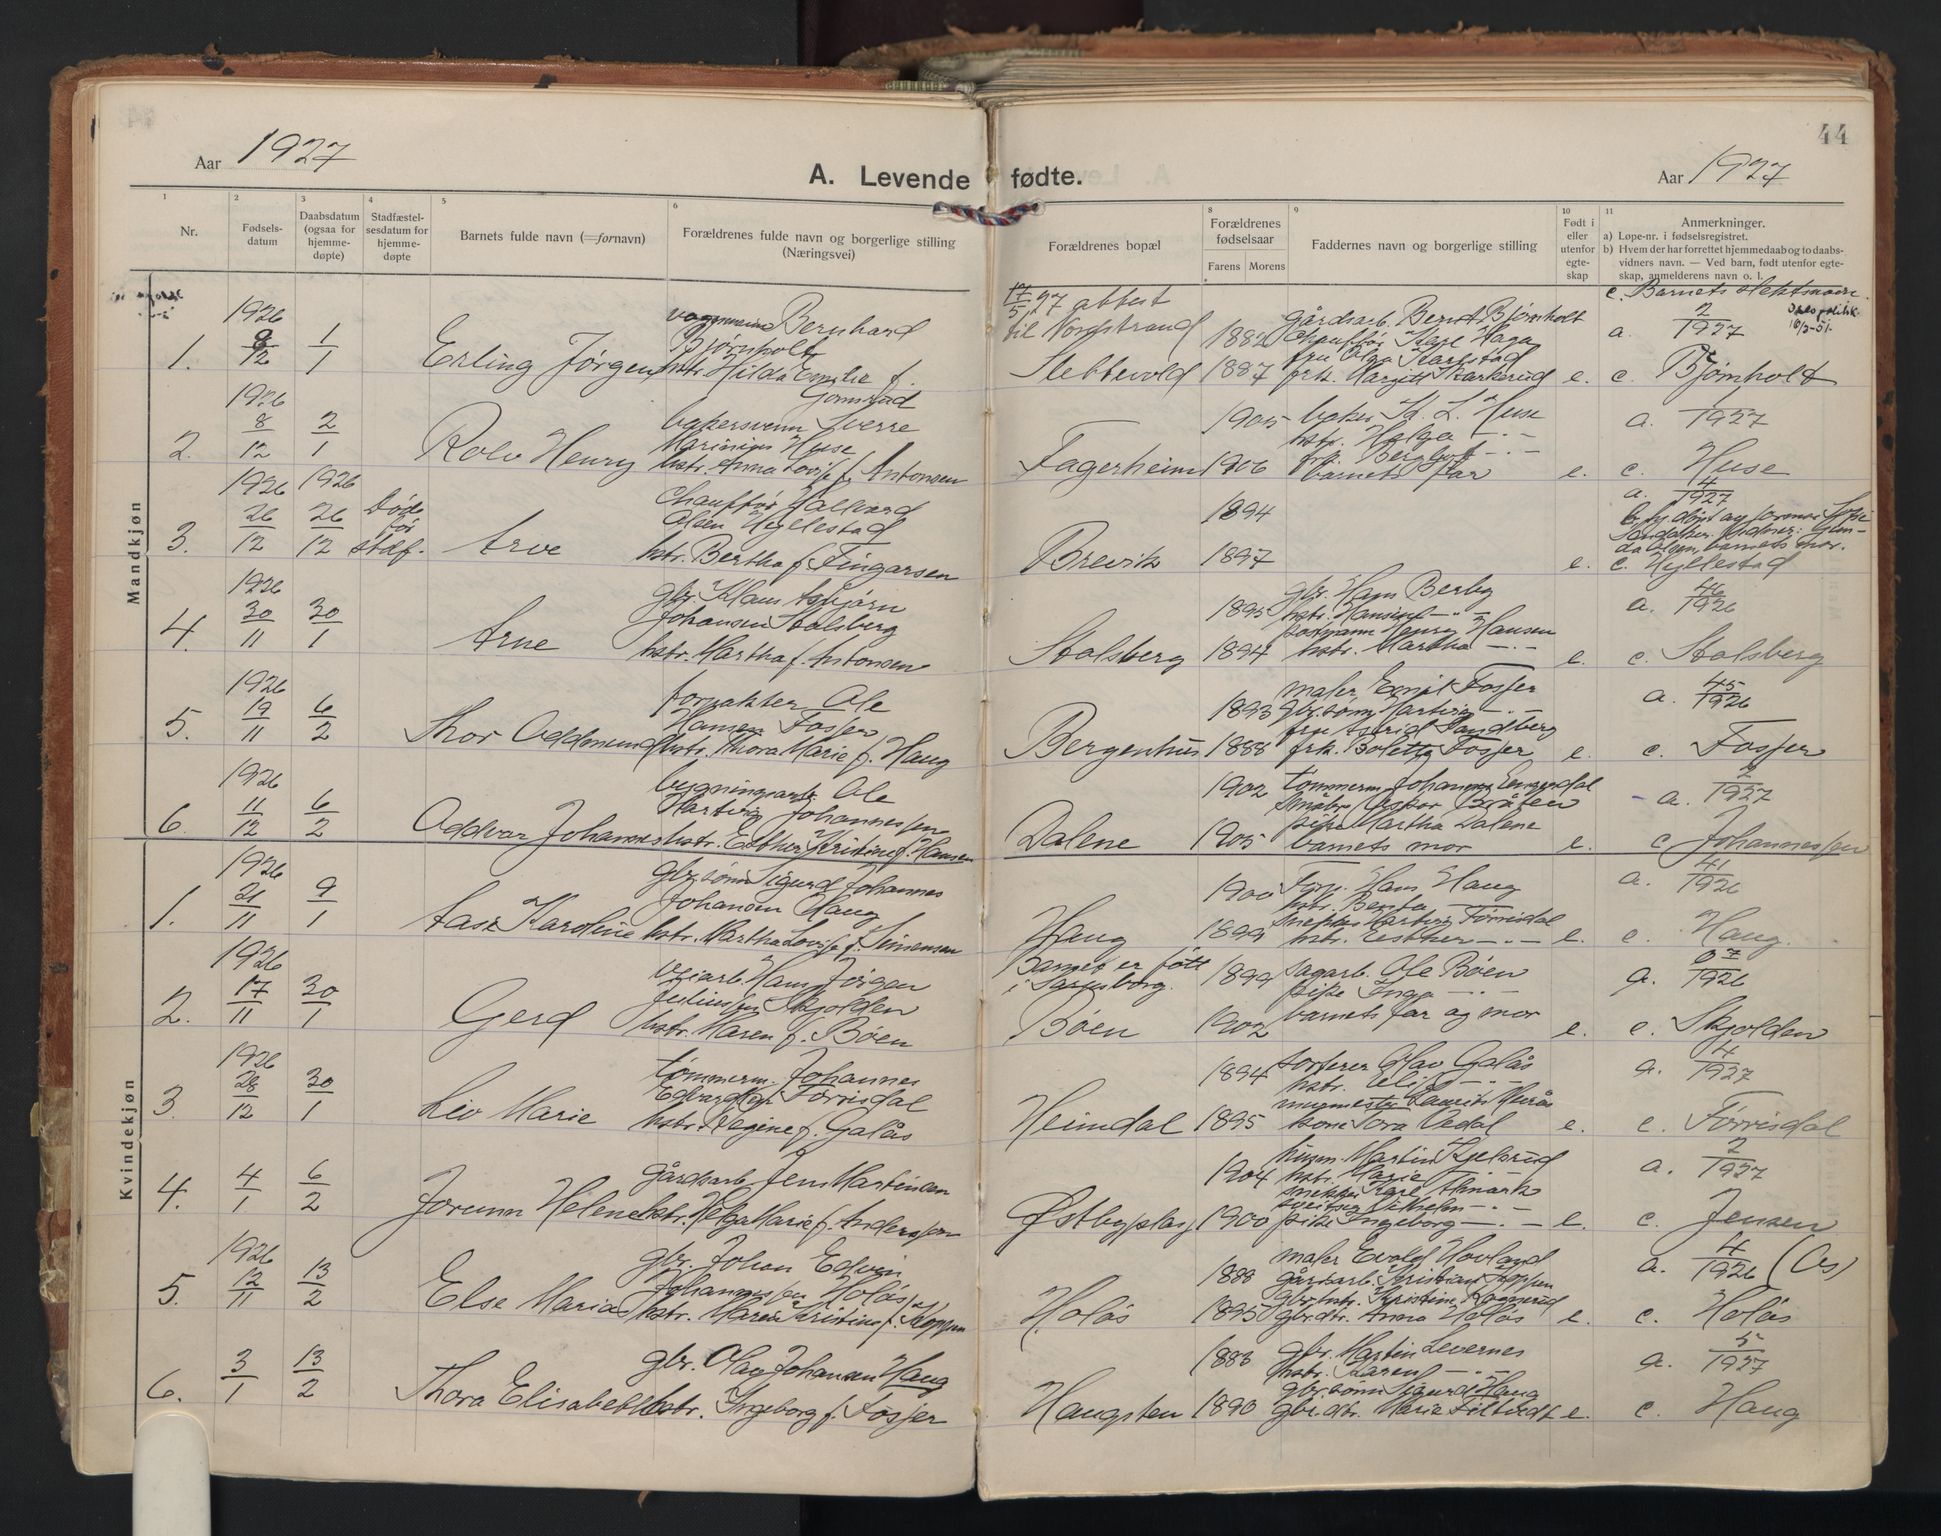 44
Aar 1927
A. Levende fødte.
Aar 1927
1
2
3
4
5
6
8
9
10
11
Nr.
Fødsels-
datum
Daabsdatum
(ogsaa for
hjemme-
døpte)
Stadfæstel-
sesdatum for
hjemme-
døpte
Barnets fulde navn (=fornavn)
Forældrenes fulde navn og borgerlige stilling
(Næringsvei)
Forældrenes bopæl
Forældrenes
fødselsaar
Farens
Morens
Faddernes navn og borgerlige stilling
Født i
eller
utenfor
egte-
skap
Anmerkninger.
a) Løpe-nr. i fødselsregistret.
b) Hvem der har forrettet hjemmedaab og to daabs-
vidners navn. — Ved barn, født utenfor egte-
skap, anmelderens navn o. l.
Mandkjøn
1926
1.
12
1/1
Erling Jørgen
Bernhard
Bjørnholt
hstr. Hilda Emilie f.
17/5 27 attest
til Nordstrand
Stebbevold
1882
1887
gårdsarb. Bernt Bjørnholt
Chauffør Kåre Haga
fru Olga Karlstad
frk. Margit Skarkerud
e.
a. 2/1927
c. Bjørnholt
1926
2.
8/12
2/1
Rolv Henry
bakersvenn Sverre
Marinius Huse
hstr. Anna Lovise f. Antonsen
Fagerheim
1905
1906
baker L. Huse
hstr. Helga —"—
barnets far
e.
a. 1927
c. Huse
1926
1926
3.
26/12
26/12
Døde
før
stadf.
Arve
Chauffør Halvard
Olsen Hyllestad
hstr. Bertha f. Fingarsen
Brevik
1894
1897
e.
a. 4/1927
barnets mor.
c. Hyllestad
1926
4.
30/11
30/1
Arne
gbr. Klaus Asbjørn
Johansen Stalsberg
hstr. Martha f. Antonsen
Stalsberg
1895
1894
gbr. Hans Berby
hstr. Hansine —"—
postmann Henry Hansen
hstr. Martha —"—
e.
a. 46/1926
c. Stalsberg
1926
5.
19/11
6/2
Thor Oddmund
forpakter Ole
Hansen Fosser
hstr. Thora Marie f. Haug
Bergenhus
1893
1888
maler Emil Fosser
gbr.sønn Hartvig —"—
fru Astrid Sandberg
frk. Bolette Fosser
e.
a. 45/1926
c. Fosser
1926
6.
11/12
6/2
Oddvar Johannes
bygningsarb. Ole
Hartvig Johannessen
hstr. Esther Kristine f. Hansen
Dalene
1902
1905
Oskar Bråten
pike Martha Dalene
barnets mor
e.
a. 2/1927
c. Johannessen
Kvindekjøn
1926
1.
21/11
9/1
Aase Karoline
gbr.sønn Sigurd Johannes
Johansen Haug
hstr. Martha Lovise f. Simensen
Haug
1900
1899
Hans Haug
hstr. Bertea —
snekker Hartvig Tørrisdal
hstr. Esther —"—
e.
a. 41/1926
c. Haug.
1926
2.
17/11
30/1
Gerd
veiarb. Hans Jørgen
Juliussen Skjolden
hstr. Maren f. Bøen
Barnet er født
i Sarpsborg.
Bøen
1899
1902
sagarb. Ole Bøen
pike Inga —"—
barnets far og mor
e.
a. 1926
c. Skjolden
1926
3.
28/12
30/1
Liv Marie
tømmerm. Johannes
Edvardsen Tørrisdal
hstr. Regine f. Galås
Heimdal
1894
1895
Olav Galås
hstr. —"—
murmester Laurits Murås
kone Tora Vedal
e.
a. 4/1927
c. Tørrisdal
4.
4/1
6/2
Jorunn Helene
gårdsarb. Jens Martinsen
hstr. Helga Marie f. Anderssen
Østbyplass
1904
1900
husm. Martin Kjelsrud
hstr. Marie
Vilhelm —"—
pike Ingeborg —"—
e.
a. 2/1927
c. Jensen
1926
5.
12/11
13/2
Else Maria
gbr. Johan Edvin
Johannessen Holås
hstr. Maren Kristine f. Koppen
Holås
1888
1895
maler Evald Hovland
gårdsarb. Kristian Koppen
gbr.dtr. Anna Holås
e.
a. 4/1926 (Ås)
c. Holås
6.
3/1
13/2
Thora Elisabeth
gbr. Olav Johansen Haug
hstr. Ingeborg f. Fosser
Haugsten
1883
1890
gbr. Martin Levernes
hstr. Karen —"—
gbr.sønn Sigurd Haug
gbr.dtr. Marie Filtvedt
e.
a. 5/1927
c. Haug